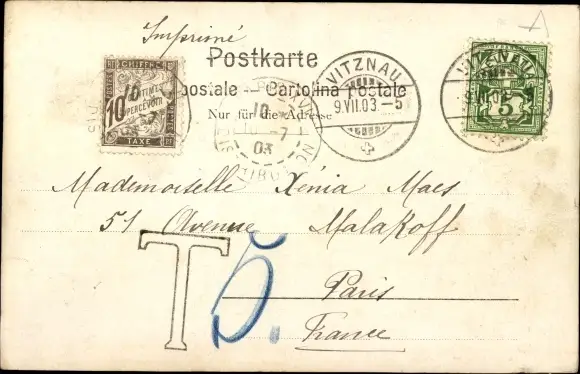 Imprimé
Postkarte
postale — Cartolina postale
Nur für die Adresse
CHIFFRE
10
CENTIMES
A PERCEVOIR
TAXE
10
-7
03
VITZNAU
9.VII.03.-5
VITZNAU
5
Mademoiselle Xénia Maes
51 Avenue Malakoff
Paris
France
T 5.